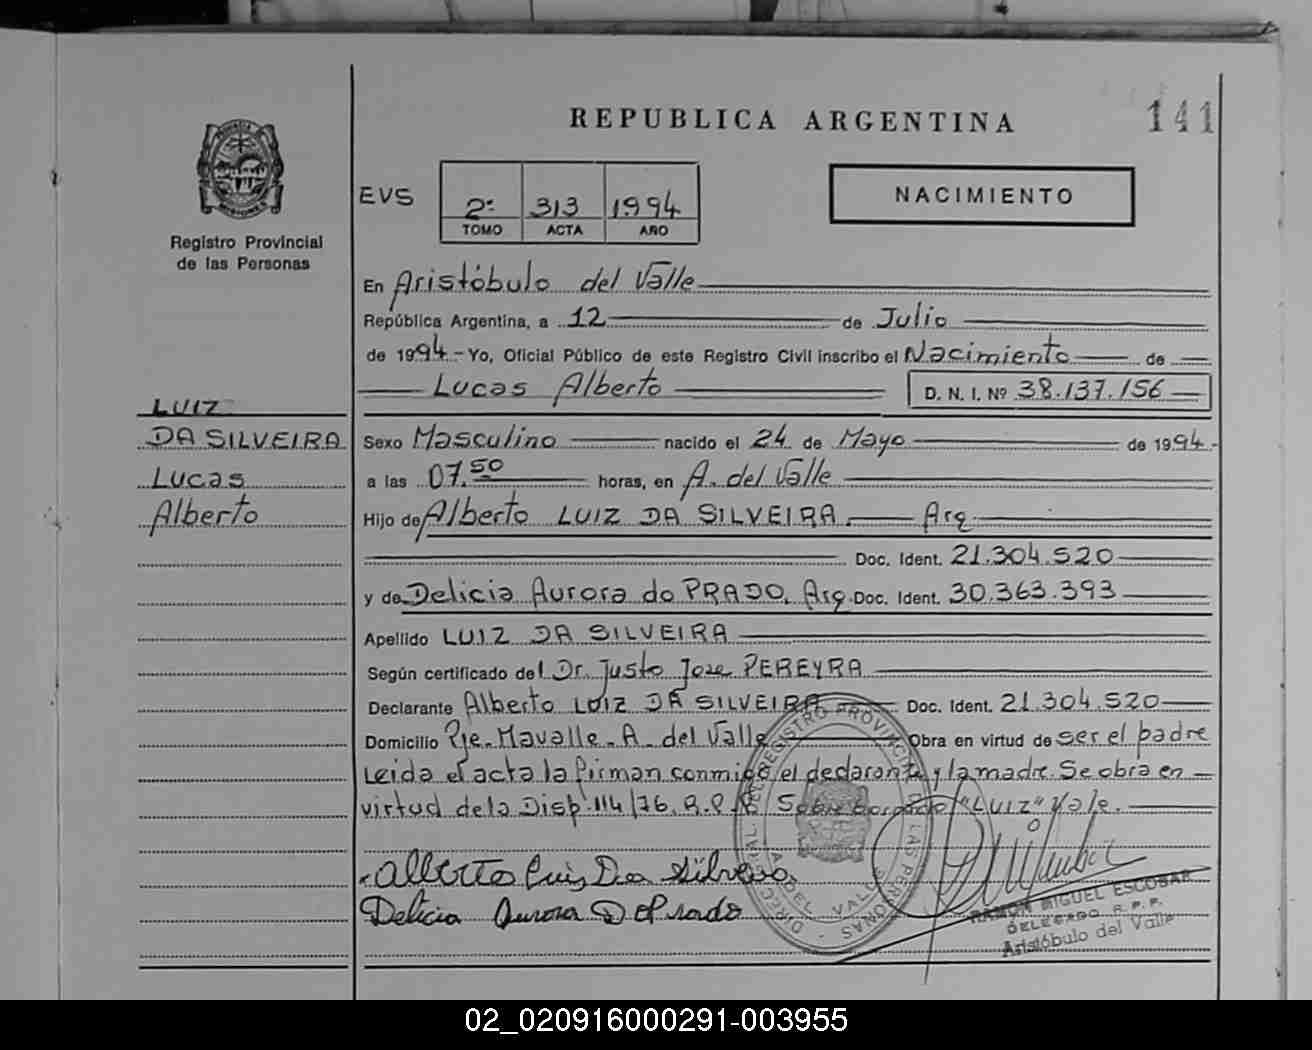 REPUBLICA ARGENTINA
141
PROVINCIA
MISIONES
Registro Provincial
de las Personas
EVS
2º 313 1994
TOMO ACTA AÑO
NACIMIENTO
En Aristóbulo del Valle
República Argentina, a 12 de Julio
de 1994.- Yo, Oficial Público de este Registro Civil inscribo el Nacimiento de
Lucas Alberto D. N. I. Nº 38.137.156
LUIZ
DA SILVEIRA
Lucas
Alberto
Sexo Masculino nacido el 24 de Mayo de 1994.-
a las 07.50 horas, en A. del Valle
Hijo de Alberto LUIZ DA SILVEIRA. Arg
Doc. Ident. 21.304.520
y de Delicia Aurora do PRADO, Arg. Doc. Ident. 30.363.393
Apellido LUIZ DA SILVEIRA
Según certificado del Dr. Justo Jose PEREYRA
Declarante Alberto LUIZ DA SILVEIRA Doc. Ident. 21.304.520
Domicilio Pje. Mavalle. A. del Valle Obra en virtud de ser el padre
Leida el acta la firman conmigo el declarante y la madre. Se obra en
virtud de la Disp. 114/76. R.P.P. Sobre borrado "LUIZ" Vale.
Alberto Luis Da Silveira
Delicia Aurora D Prado
RAMON MIGUEL ESCOBAR
DELEGADO R.P.P.
Aristóbulo del Valle
REGISTRO PROVINCIAL DE LAS PERSONAS
A. DEL VALLE
02_020916000291-003955